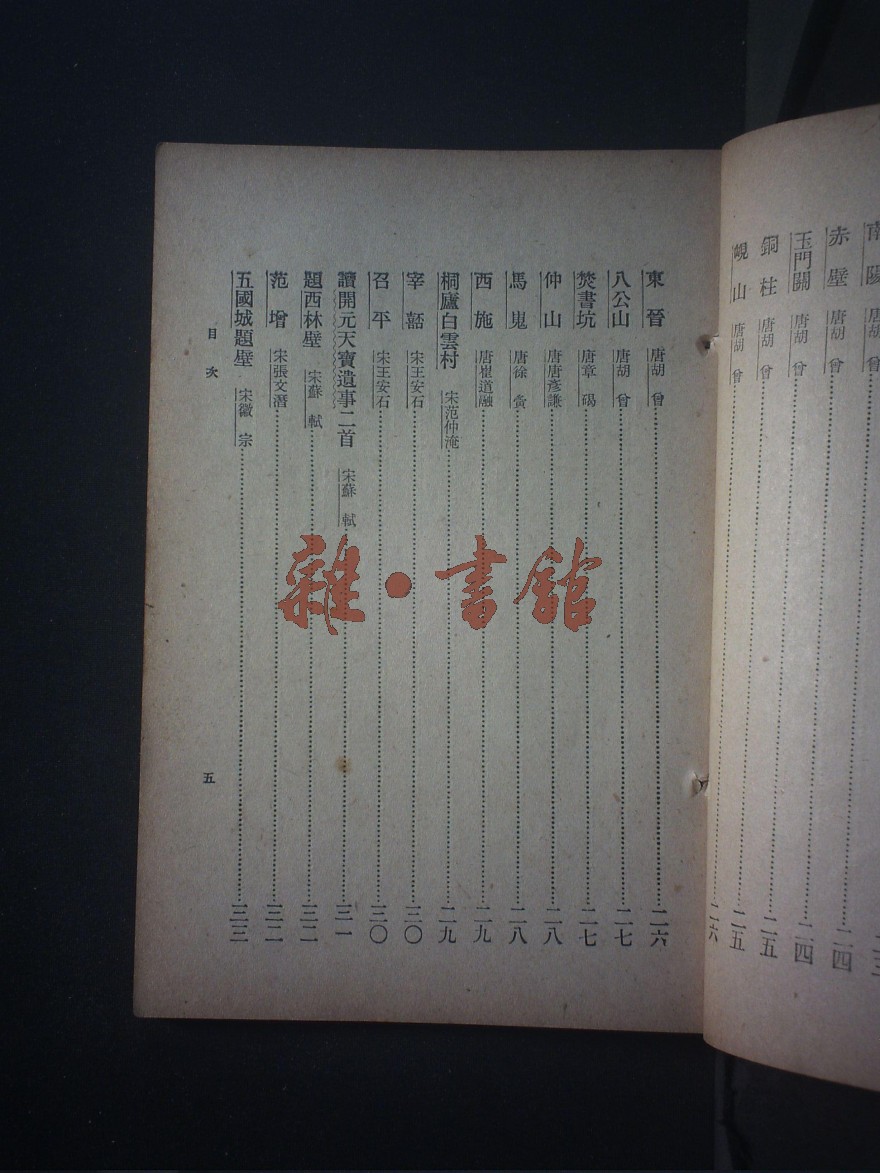 赤壁 唐胡曾 二四
玉門關 唐胡曾 二四
銅柱 唐胡曾 二五
峴山 唐胡曾 二五
二六
東晉 唐胡曾 二六
八公山 唐胡曾 二七
焚書坑 唐章碣 二七
仲山 唐唐彥謙 二八
馬嵬 唐徐夤 二八
西施 唐崔道融 二九
桐廬白雲村 宋范仲淹 二九
宰嚭 宋王安石 三〇
召平 宋王安石 三〇
讀開元天寶遺事二首 宋蘇軾 三一
題西林壁 宋蘇軾 三二
范增 宋張文潛 三二
五國城題壁 宋徽宗 三三
目次 五
雜·書館